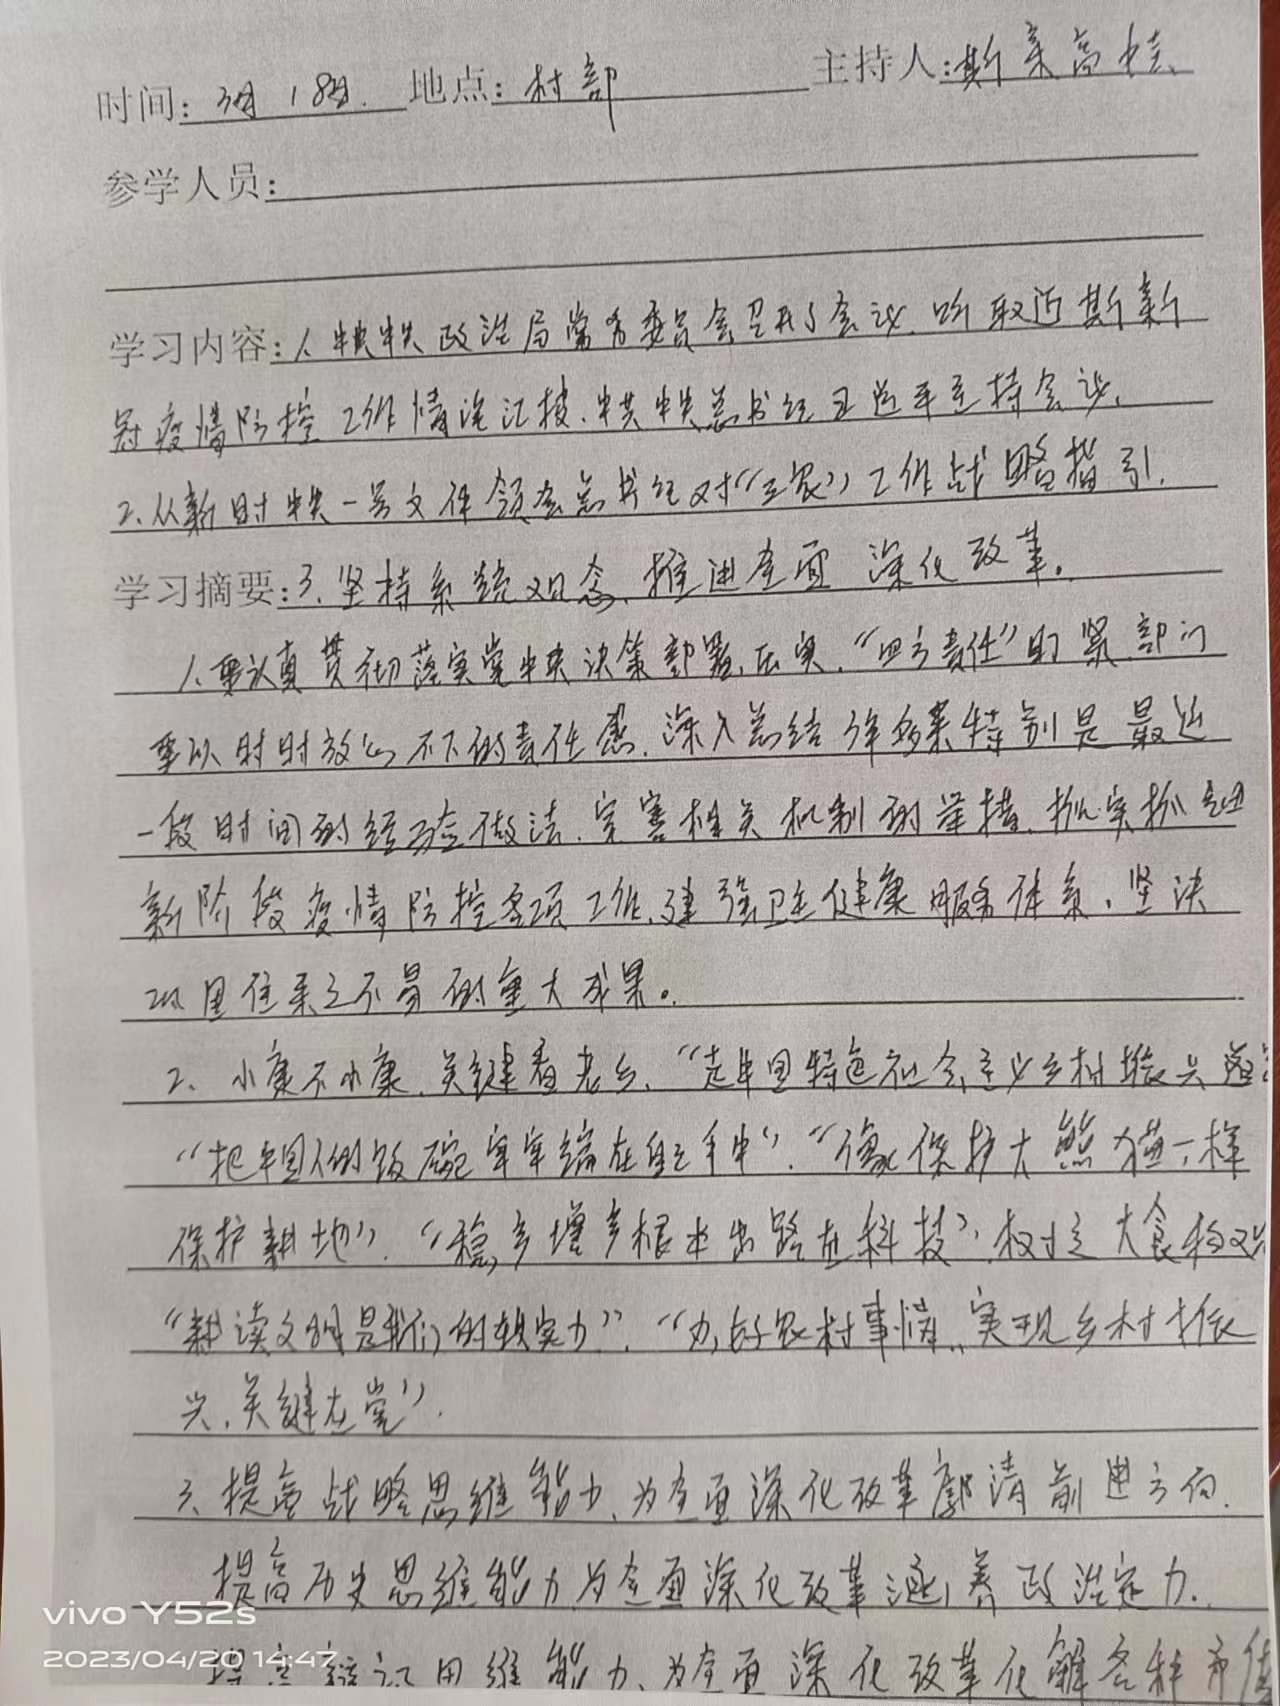 时间: 3月18日. 地点: 村部 主持人: 斯来高娃
参学人员:
学习内容: 1、中共中央政治局常务委员会召开了会议. 听取近期新
冠疫情防控工作情况汇报. 中共中央总书记习近平主持会议.
2.从新时中央一号文件领会总书记对“三农”工作战略指引.
学习摘要: 3.坚持系统观念、推进全面深化改革。
1.要认真贯彻落实党中央决策部署,压实“四方责任” 部门
要以时时放心不下的责任感. 深入总结 特别是最近
一段时间的经验做法. 完善相关机制的举措. 抓实抓细
新阶段疫情防控各项工作,建强卫生健康服务体系. 坚决
巩固住来之不易的重大成果。
2、小康不小康. 关键看老乡、“走中国特色社会主义乡村振兴道
“把中国人的饭碗牢牢端在自己手中”. “像保护大熊猫一样
保护耕地”. “稳产增产根本出路在科技”. 树立大食物观
“耕读文明是我们的软实力”. “办好农村事情,实现乡村振
兴.关键在党”.
3.提高战略思维能力、为全面深化改革廓清前进方向.
提高历史思维能力.为全面深化改革涵养政治定力.
提高辩证思维能力、为全面深化改革化解各种
vivo Y52s
2023/04/20 14:47